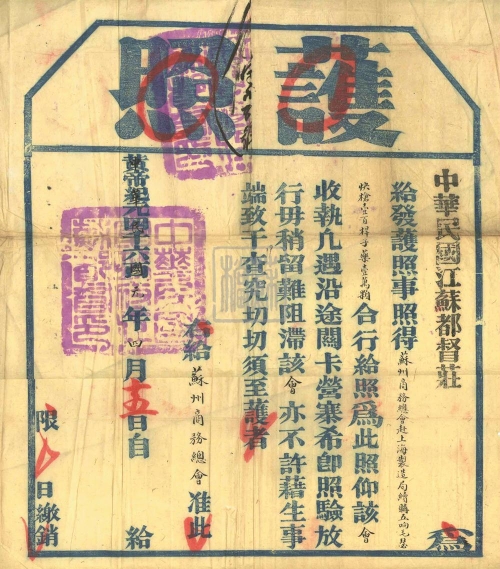 護照
中華民國江蘇都督莊 爲
給發護照事照得蘇州商務總會赴上海製造局續購五响毛瑟
快槍壹百桿子藥壹萬顆合行給照爲此照仰該會
收執凡遇沿途關卡營寨希卽照驗放
行毋稍留難阻滯該會亦不許藉生事
端致干查究切切須至護者
右給蘇州商務總會准此
黃帝紀元四千六百 年四月十五日自 給
限 日繳銷